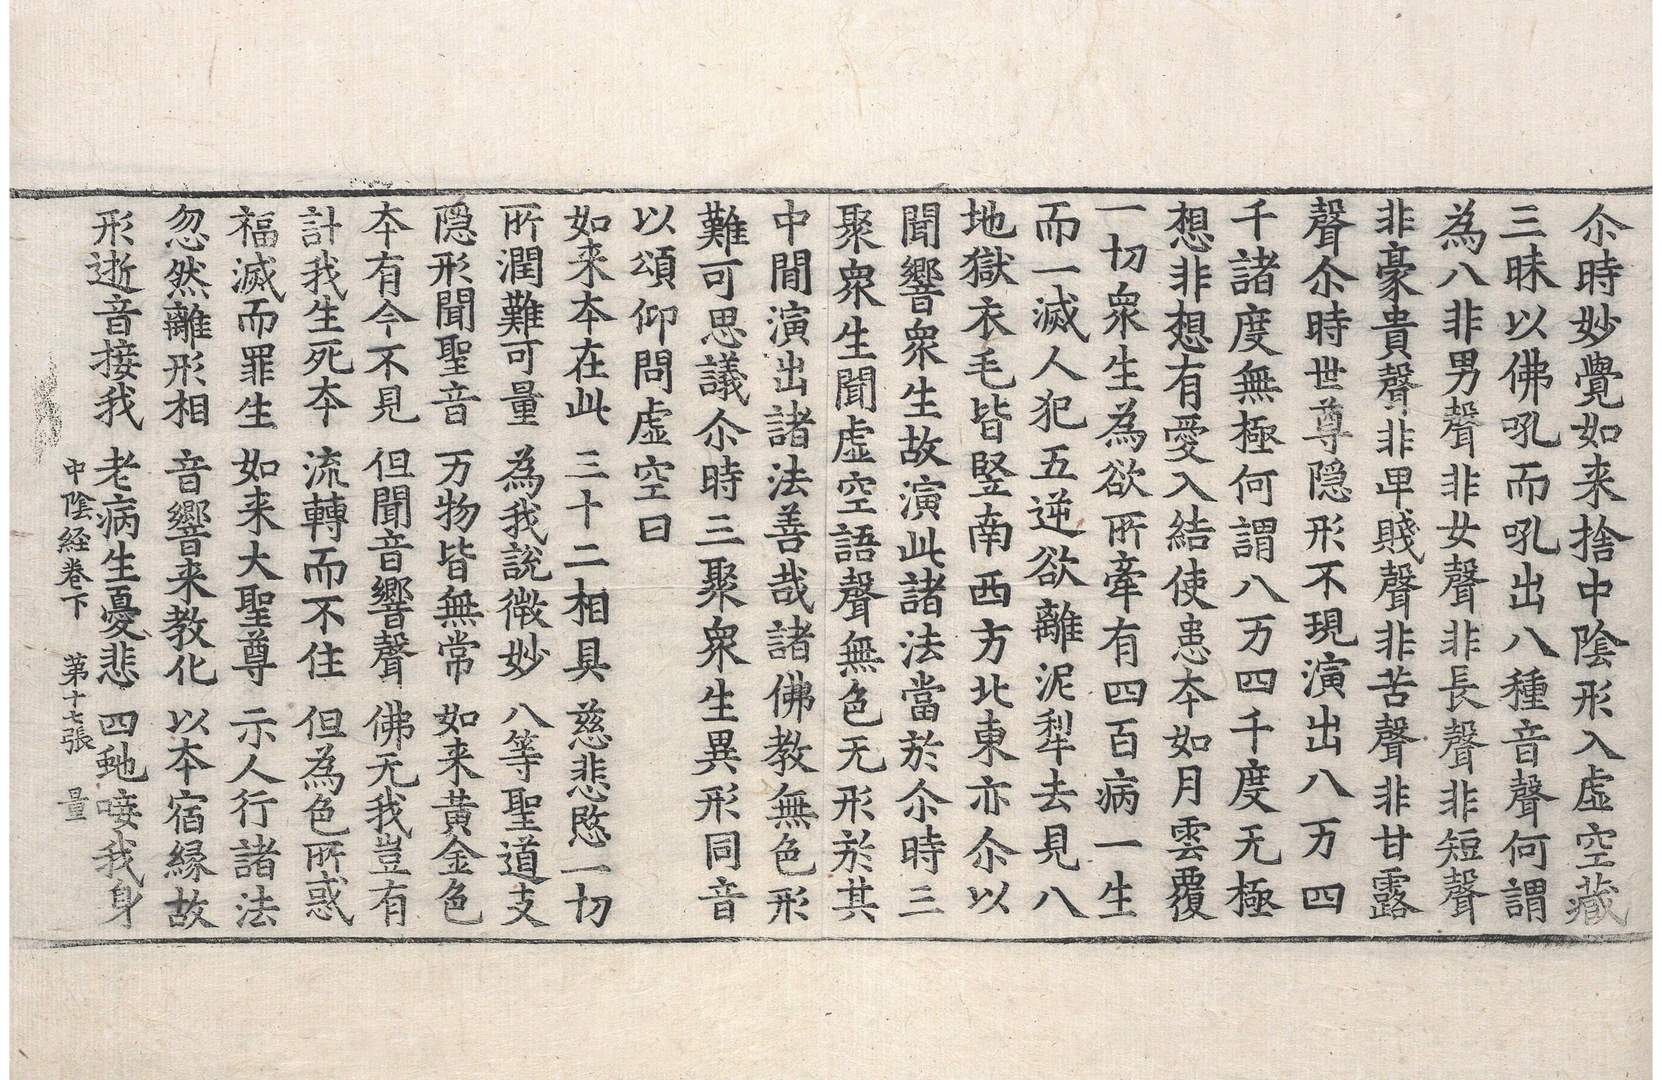 尒時妙覺如来捨中陰形入虛空藏
三昧以佛吼而吼出八種音聲何謂
為八非男聲非女聲非長聲非短聲
非豪貴聲非卑賤聲非苦聲非甘露
聲尒時世尊隐形不現演出八万四
千諸度無極何謂八万四千度无極
想非想有愛入結使患夲如月雲覆
一切衆生為欲所牽有四百病一生
而一滅人犯五逆欲離泥犁去見八
地獄衣毛皆竪南西方北東亦尒以
聞響衆生故演此諸法當於尒時三
聚衆生聞虛空語聲無色无形於其
中閒演出諸法善哉諸佛教無色形
難可思議尒時三聚衆生異形同音
以頌仰問虛空曰
如来夲在此　三十二相具　慈悲愍一切
所潤難可量　為我說微妙　八等聖道支
隐形聞聖音　万物皆無常　如来黃金色
夲有今不見　但聞音響聲　佛无我豈有
計我生死夲　流轉而不住　但為色所惑
福滅而罪生　如来大聖尊　示人行諸法
忽然離形相　音響来教化　以夲宿縁故
形逝音接我　老病生憂悲　四虵唼我身
中陰経卷下　第十七張　量